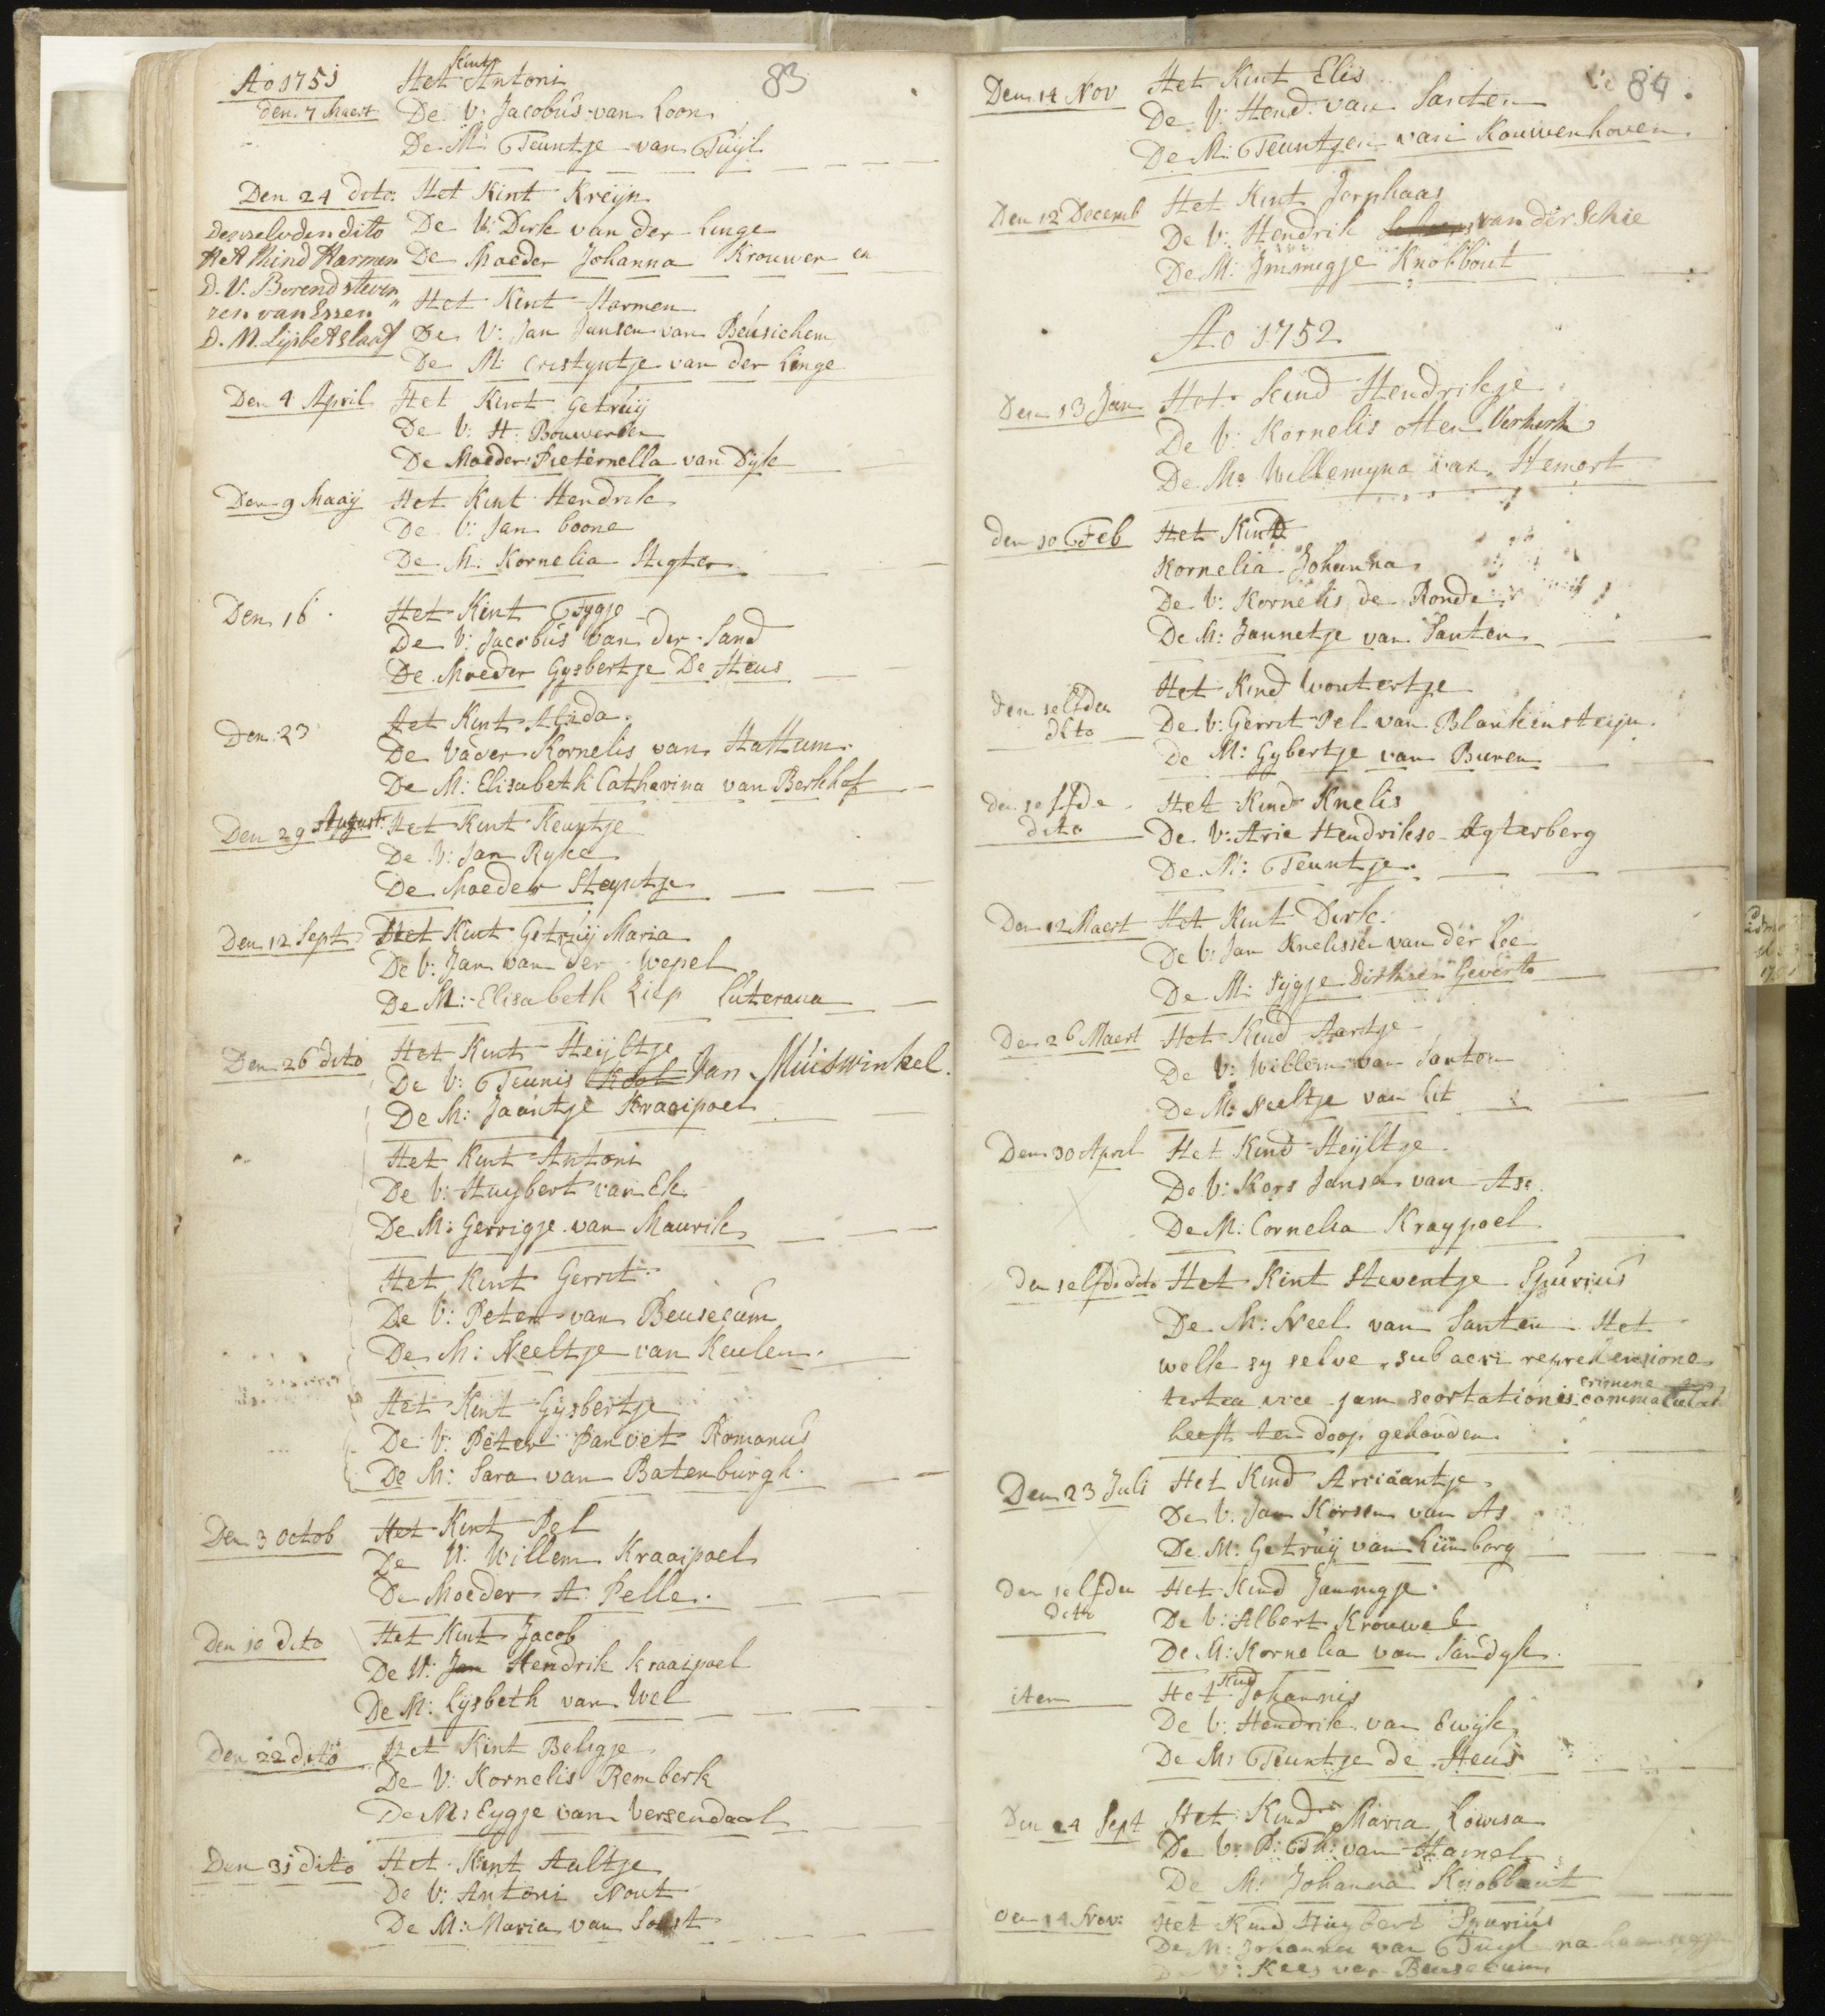 83
Ao 1751
den 7 Maert
Het kint Antoni
De V: Jacobus van Loon
De M: Teuntje van Tuijl
Den 24 dito
Het Kint Kreijn
De V: Dirk van der Linge
De Maeder Johanna Krouwer en
denzelvden dito
Het Kind Harmen
D. V. Berend steven
zen van Essen
D. M. Lijsbet Slaaf
Het Kint Harmen
De V: Jan Jansen van Beusichem
De M: Cristyntje van der Linge
Den 4 April
Het Kint Getruij
De V: H: Bouwerden
De Maeder Pieternella van Dijk
Den 9 Maaij
Het Kint Hendrik
De V: Jan boone
De M: Kornelia Stigter
Den 16
Het Kint Tygje
De V: Jacobus van der Sand
De Moeder Gysbertje De Heus
Den 23
Het Kint Alida
De Vader Kornelis van Hattum
De M: Elisabeth Catharina van Berkhof
Den 29 August
Het Kint Keuntje
De V: Jan Ryke
De Maeder Steyntje
Den 12 Sept
Het Kint Getruij Maria
De V: Jan van der Wepel
De M: Elisabeth Liep Luterana
Den 26 dito
Het Kint Heijltje
De V: Teunis Kool Van Muiswinkel.
De M: Jaantje Kraaipoel
Het Kint Antoni
De V: Huybert van Ek
De M: Gerrigje van Maurik
Het Kint Gerrit
De V: Peter van Beusecum
De M: Neeltje van Keulen
Het Kint Gijsbertje
De V: Peter Panvet Romanus
De M: Sara van Batenburgh.
Den 3 Octob
Het Kint Pel
De V: Willem Kraaipoel
De Moeder A: Pelle.
Den 10 dito
Het Kint Jacob
De V: Jan Hendrik kraaipoel
De M: Lijsbeth van Wel
Den 22 dito
Het Kint Beligje
De V: Kornelis Remberk
De M: Eygje van Versendaal
Den 31 dito
Het Kint Aaltje
De V: Antoni Nout
De M: Maria van Soest
84
Den 14 Nov
Het Kint Elis
De V: Hend. van Santen
De M: Teuntjen van Kouwenhoven
Den 12 Decemb
Het Kint Jorphaas
De V: Hendrik van der Schie
De M: Immigje Knobbout
Ao 1752
Den 13 Jan
Het Kind Hendrikje
De V: Kornelis otten Verkerk
De M: Willemyna van Hemert
den 10 Feb
Het Kind
Kornelia Johanna
De V: Kornelis de Ronde
De M: Jannetje van Santen
den selfden
dito
Het Kind Woutertje
De V: Gerrit Pel van Blankensteijn.
De M: Gybertje van Buren
den selfde
dito
Het Kind Knelis
De V: Arie Hendrikse Agterberg
De M: Teuntje.
Den 12 Maert
Het Kint Dirk.
De V: Jan Knelissen van der Loe
De M: Sijgje Dirksen Geverts
Den 26 Maert
Het Kind Aartje
De V: Willem van Santen
De M: Neeltje van Lit
Den 30 April
Het Kind Heijltje
De V: Kors Jansen van Ase
De M: Cornelia Kraypoel
den selfde dito
Het Kint Steventje Spurius
De M: Neel van Santen Het
welk sy selve, sub acri reprehensione
tertia vice jam scortationis crimine commaculat
heeft ten doop gehouden.
Den 23 Juli
Het Kind Arriaantje
De V: Jan Korsen van As
De M: Getruij van Limborg
den selfden
dito
Het Kind Jannigje
De V: Albert Krouwel
De M: Kornelia van Sandyk.
item
Het Kind Johannis
De V: Hendrik van Ewijk
De M: Teuntje de Heus
Den 24 Sept
Het Kind Maria Lowisa
De V: P: Th: van Hamel
De M: Johanna Knobbout
den 14 Nov:
Het Kind Huybert Spurius
De M: Johanna van Tuyl na haar
De V: Kees van Beusecum